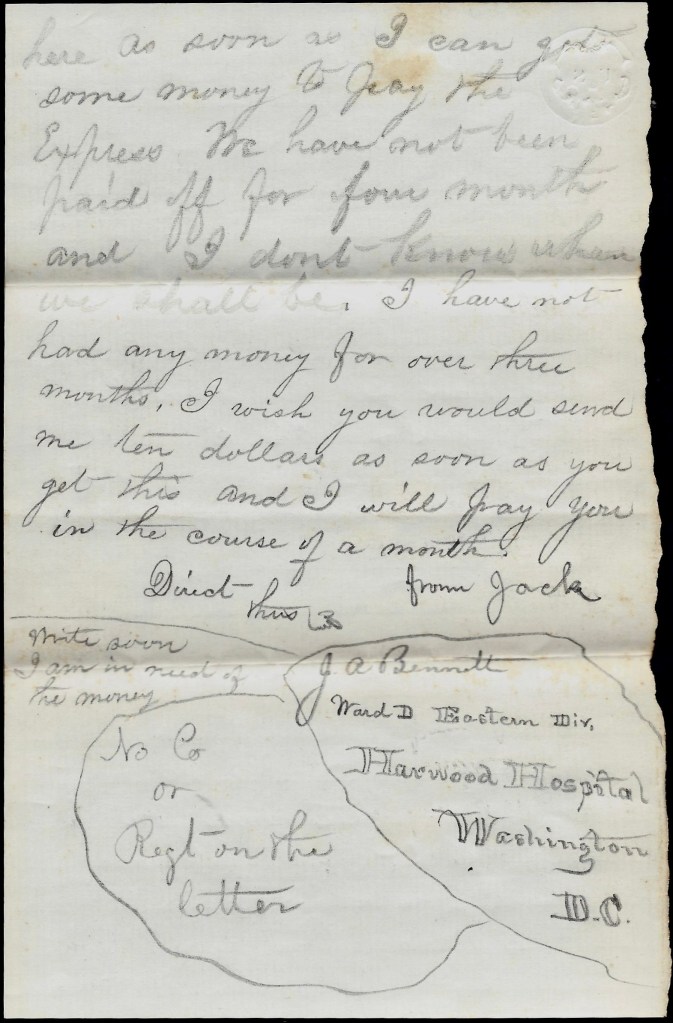 here as soon as I can get
some money to pay the
Express We have not been
paid off for four month
and I dont know when
we shall be. I have not
had any money for over three
months. I wish you would send
me ten dollars as soon as you
get this and I will pay you
in the course of a month.
Direct from Jack
thus
Write soon
I am in need of
the money
J A Bennett
Ward D Eastern Div,
Harwood Hospital
Washington
D.C.
No Co
or
Regt on the
letter